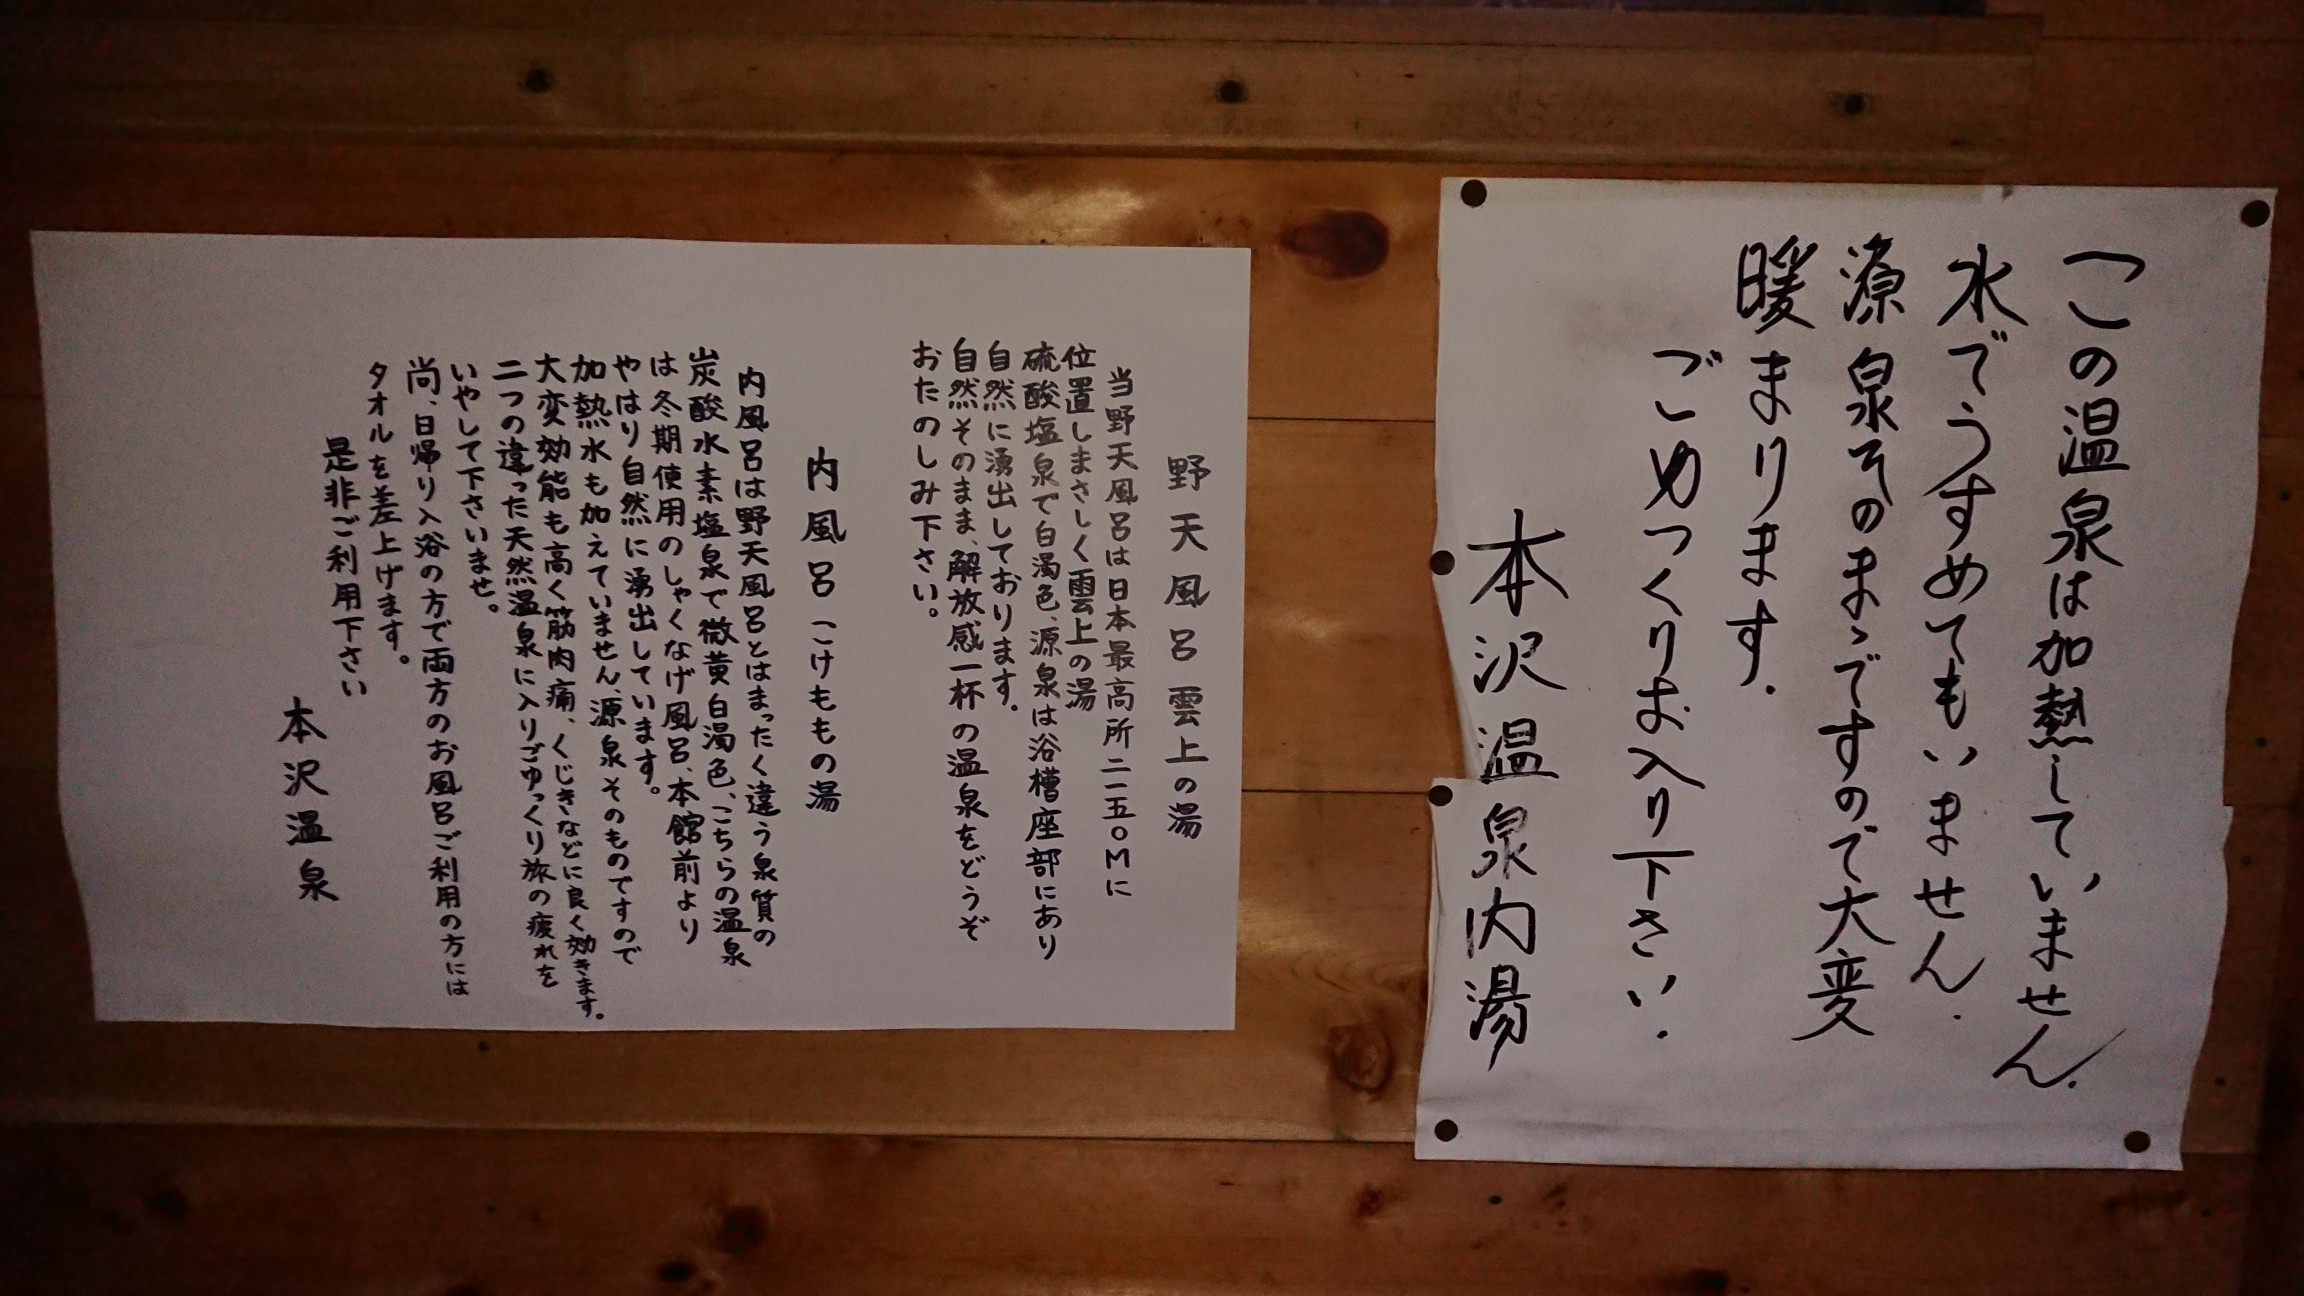 この温泉は加熱していません.
水でうすめてもいません.
源泉そのまゝですので大変
暖まります.
ごゆっくりお入り下さい.
本沢温泉内湯
野天風呂雲上の湯
当野天風呂は日本最高所二一五〇Mに
位置しまさしく雲上の湯
硫酸塩泉で白濁色、源泉は浴槽座部にあり
自然に湧出しております。
自然そのまま、解放感一杯の温泉をどうぞ
おたのしみ下さい。
内風呂 こけももの湯
内風呂は野天風呂とはまったく違う泉質の
炭酸水素塩泉で微黄白濁色、こちらの温泉
は冬期使用のしゃくなげ風呂、本館前より
やはり自然に湧出しています。
加熱水も加えていません、源泉そのものですので
大変効能も高く筋肉痛、くじきなどに良く効きます。
二つの違った天然温泉に入りごゆっくり旅の疲れを
いやして下さいませ。
尚、日帰り入浴の方で両方のお風呂ご利用の方には
タオルを差上げます。
是非ご利用下さい
本沢温泉